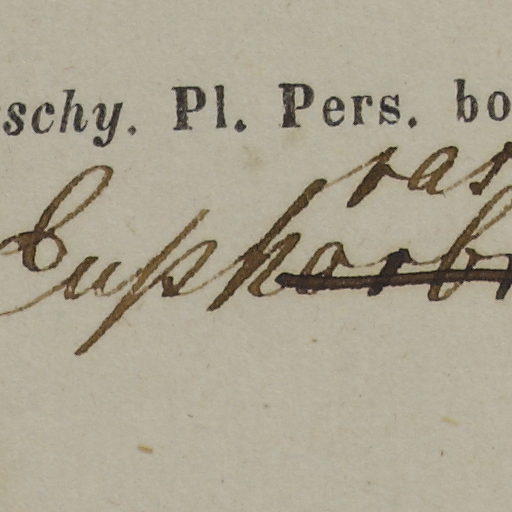 schy. Pl. Pers. bo
ras
Euphorb